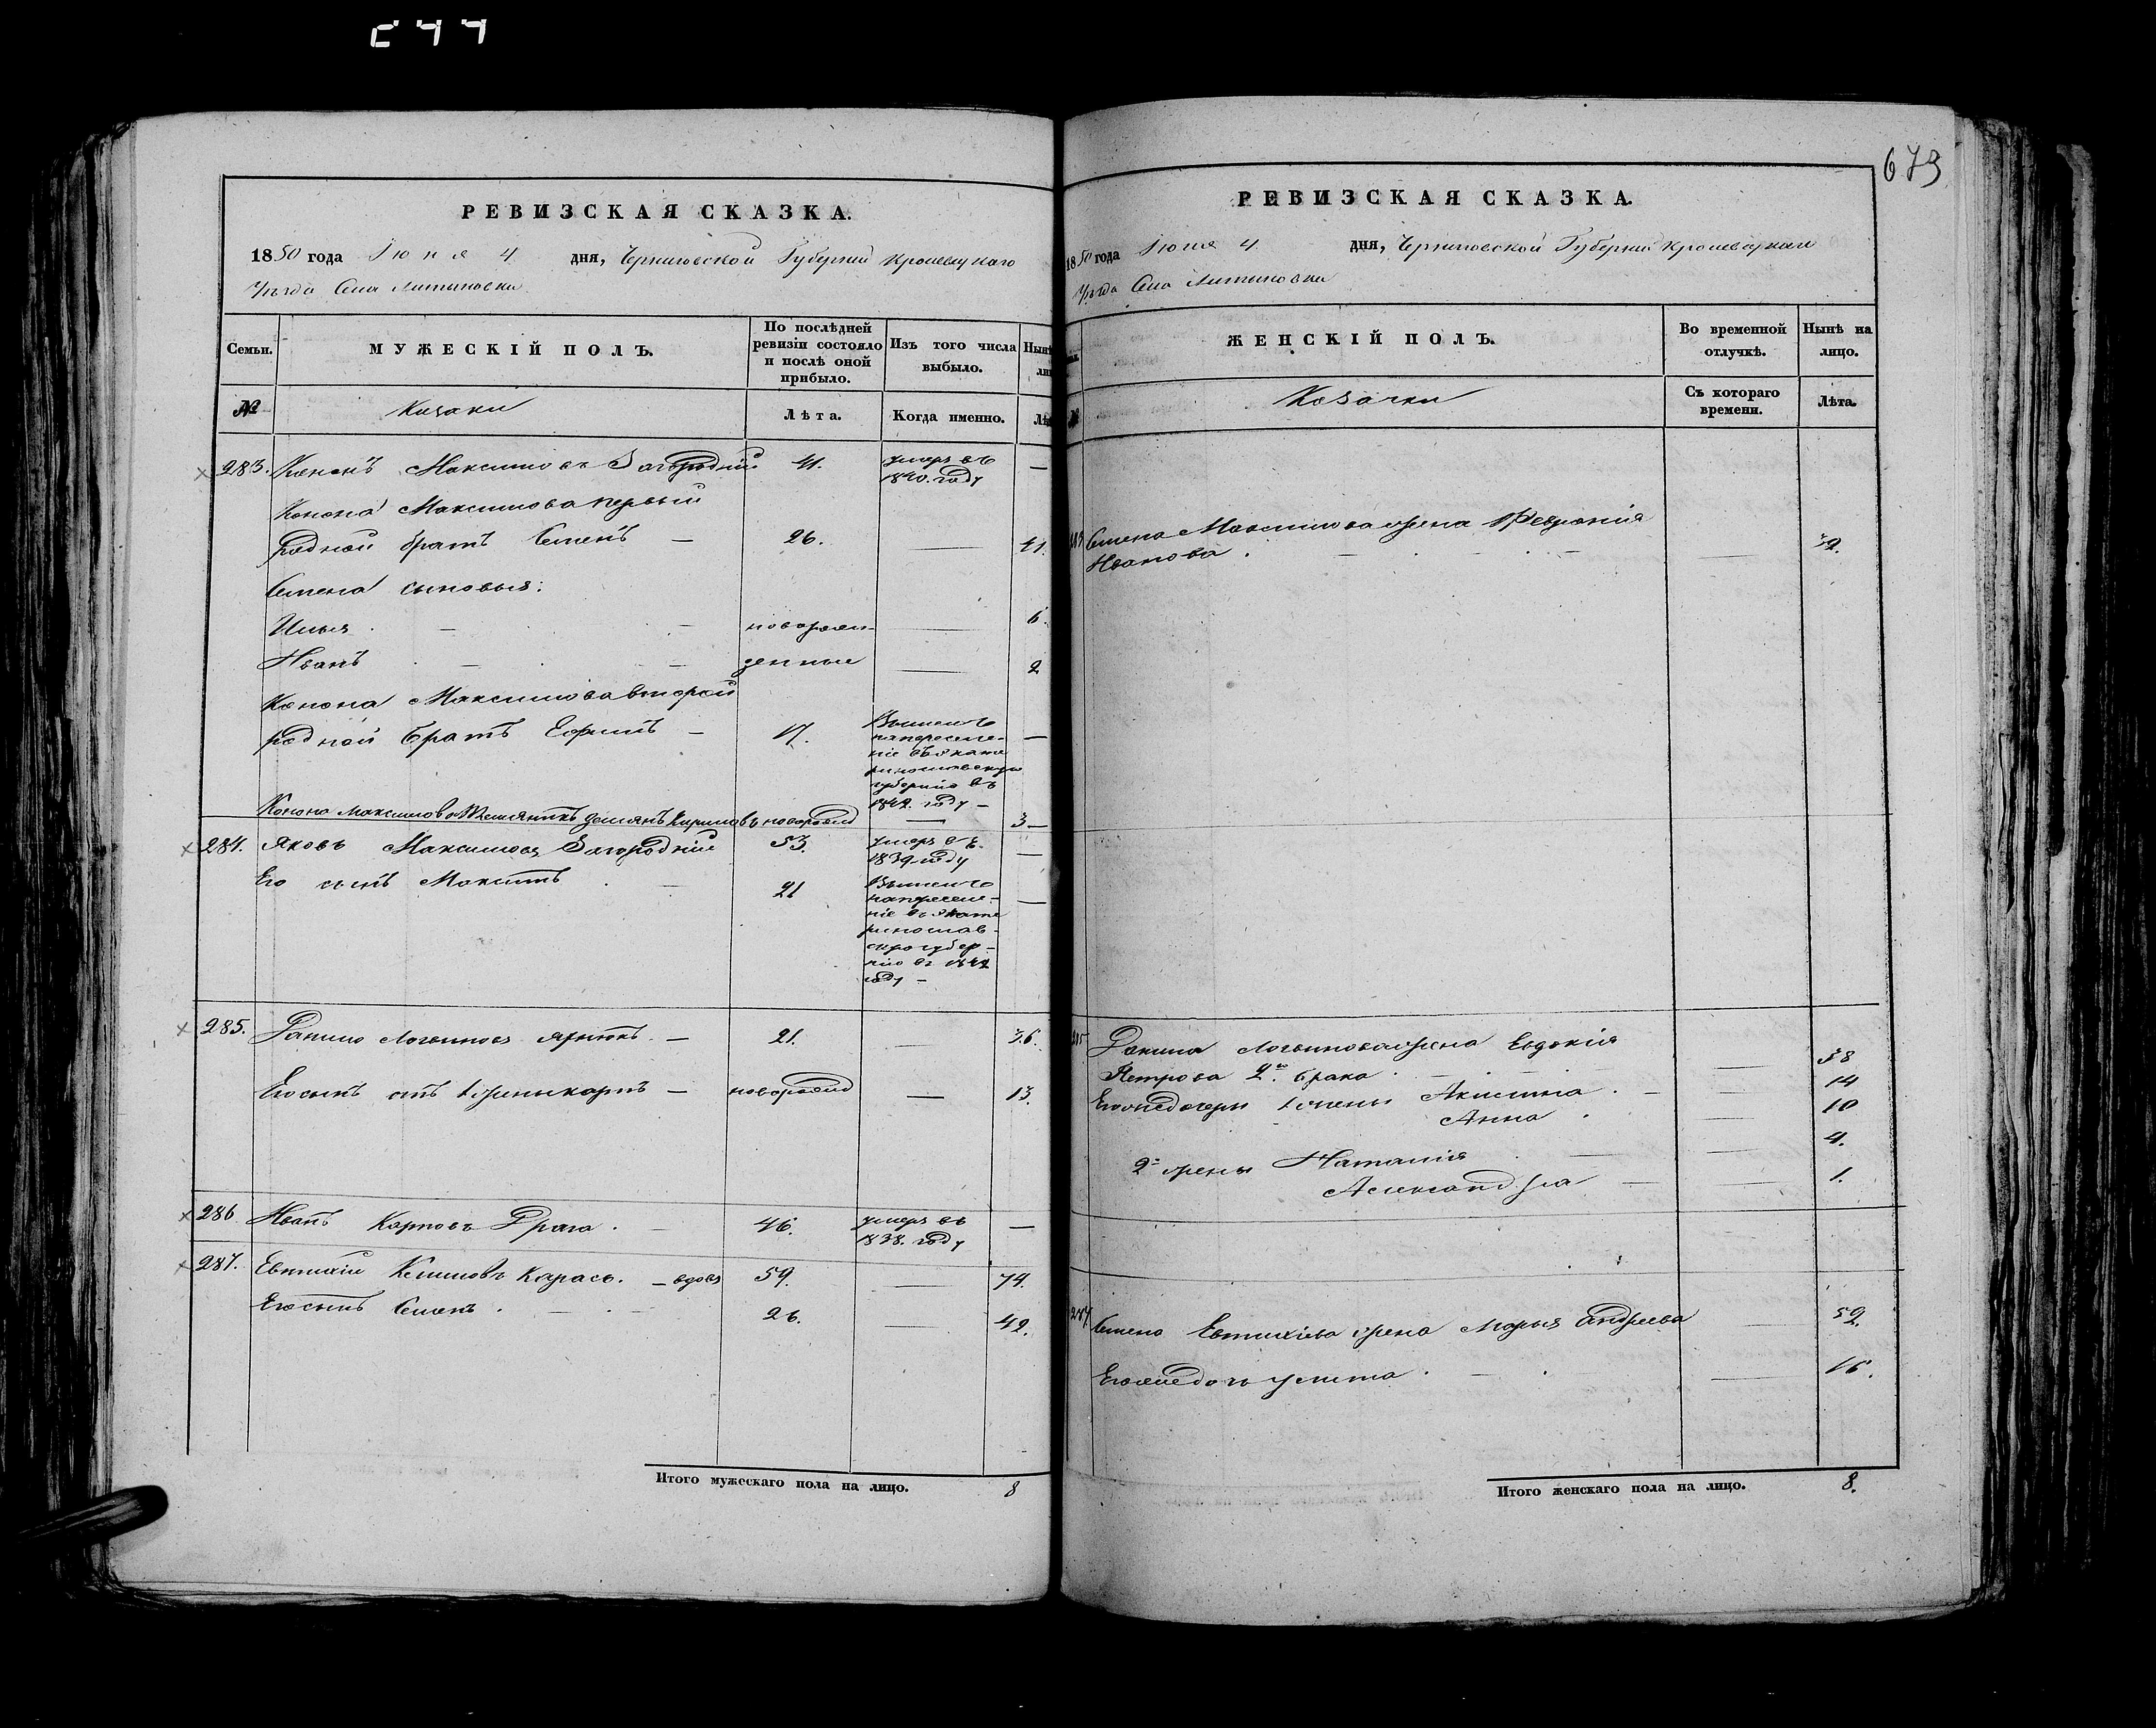 673
РЕВИЗСКАЯ СКАЗКА.
1850 года Іюня 4 дня, Черниговской Губерніи Кролевецкаго
Уѣзда Села Литвиновки
Семьи.
МУЖЕСКІЙ ПОЛЪ.
По послѣдней ревизіи состояло и послѣ оной прибыло.
Изъ того числа выбыло.
Нынѣ
№
Козаки
Лѣта.
Когда именно.
283. Кононъ Максимовъ Загородній 41. умеръ въ 1840. году —
Конона Максимова первый
родной братъ Семенъ — 26. — 41.
Семена сыновья:
Илья — — новорож- — 6.
Иванъ — — денные — 2
Конона Максимова второй
родной братъ Ефимъ — 17. —
на переселе-
ніе въ Екате
ринославскую
губернію въ
1842. году —
Конона Максимова племянникъ Демянъ Кириловъ новорожд — 3 —
284. Яковъ Максимовъ Загородній 53. умеръ въ 1839 году —
Его сынъ Максимъ — 21 —
на переселе-
ніе въ Екате
ринослав-
скую губер-
нію въ 1842
году —
285. Данило Логвиновъ — 21. — 36.
Его сынъ отъ 1 жены Карпъ — новорожд — 13.
286 Иванъ Карповъ Драга. — 46. умеръ въ 1838. году —
287. Евтихій Климовъ Карась. — вдовъ 59. — 74.
Его сынъ Семенъ. — — 26. — 42.
Итого мужескаго пола на лицо. 8
РЕВИЗСКАЯ СКАЗКА.
1850 года Іюня 4. дня, Черниговской Губерніи Кролевецкаго
Уѣзда Села Литвиновки
ЖЕНСКІЙ ПОЛЪ.
Во временной отлучкѣ.
Нынѣ на лицо.
№
Козачки
Съ котораго времени.
Лѣта.
283 Семена Максимова жена Февронія
Иванова. — — — 39.
285 Данила Логвинова жена Евдокія
Петрова 2го брака — — 38
Его же дочери 1 жены Акилина. — — 14
Анна. — 10
2й жены Наталія — — 4.
Александра — — 1.
287 Семена Евтихіева жена Марья Андреева — 52.
Его же дочь Улита. — — 16.
Итого женскаго пола на лицо. 8.